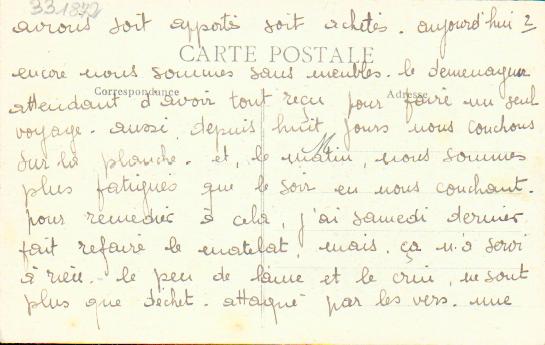 331872
avions soit apporté soit achetés. aujourd'hui 2
CARTE POSTALE
encore nous sommes sans meubles. le demenageur
Correspondance
Adresse
attendant d'avoir tout reçu pour faire un seul
voyage. aussi depuis huit jours nous couchons
sur la planche. et, le matin, nous sommes
plus fatigués que le soir en nous couchant.
pour remedier à cela, j'ai samedi dernier
fait refaire le matelat, mais. ça n'a servi
à rien. le peu de laine et le crin, ne sont
plus que déchet. attaqué par les vers. une